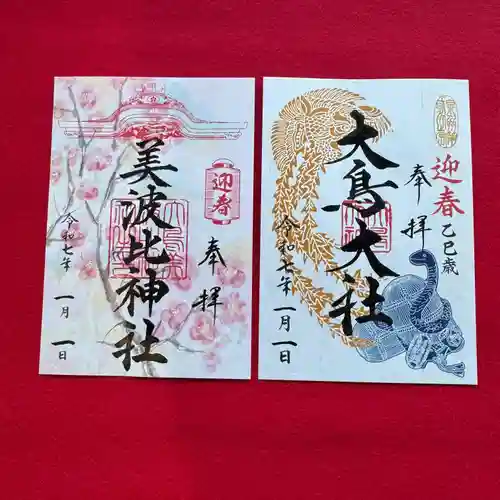 奉拝
迎春
美波比神社
令和七年
一月
一日
迎春
乙巳歳
奉拝
大鳥大社
令和七年
一月
一日